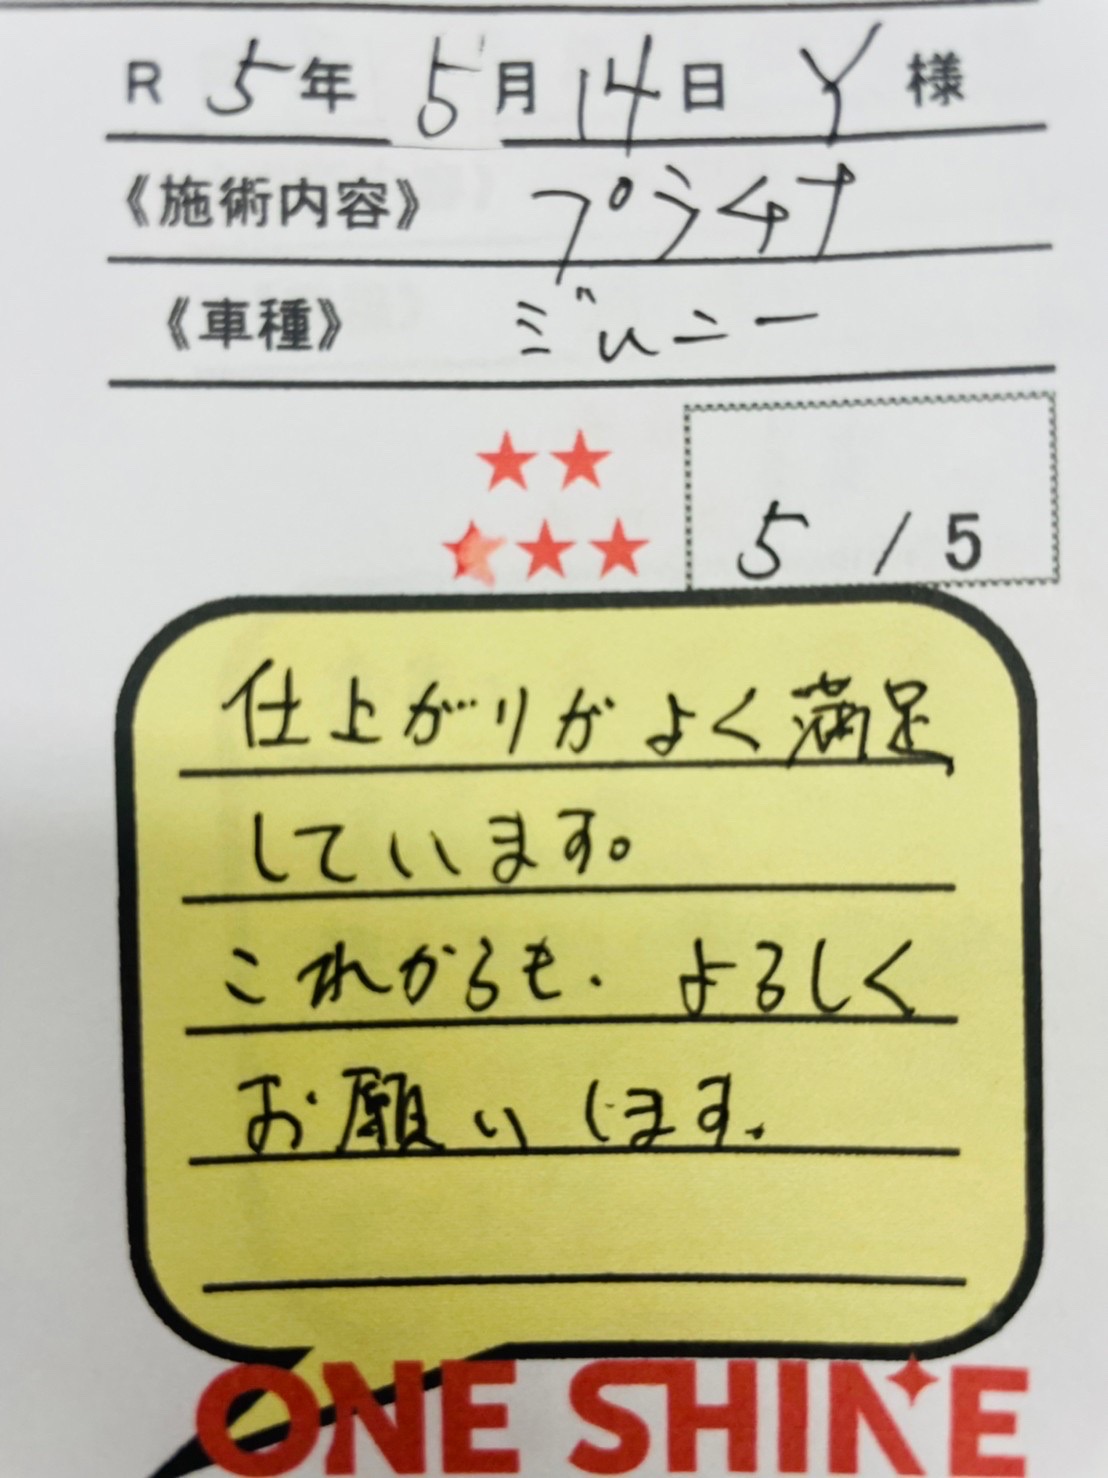 R 5年 5月 14日 Y 様
《施術内容》 プラチナ
《車種》 ジムニー
★★
★★★
5 / 5
仕上がりがよく満足
しています。
これからも、よろしく
お願いします.
ONE SHINE